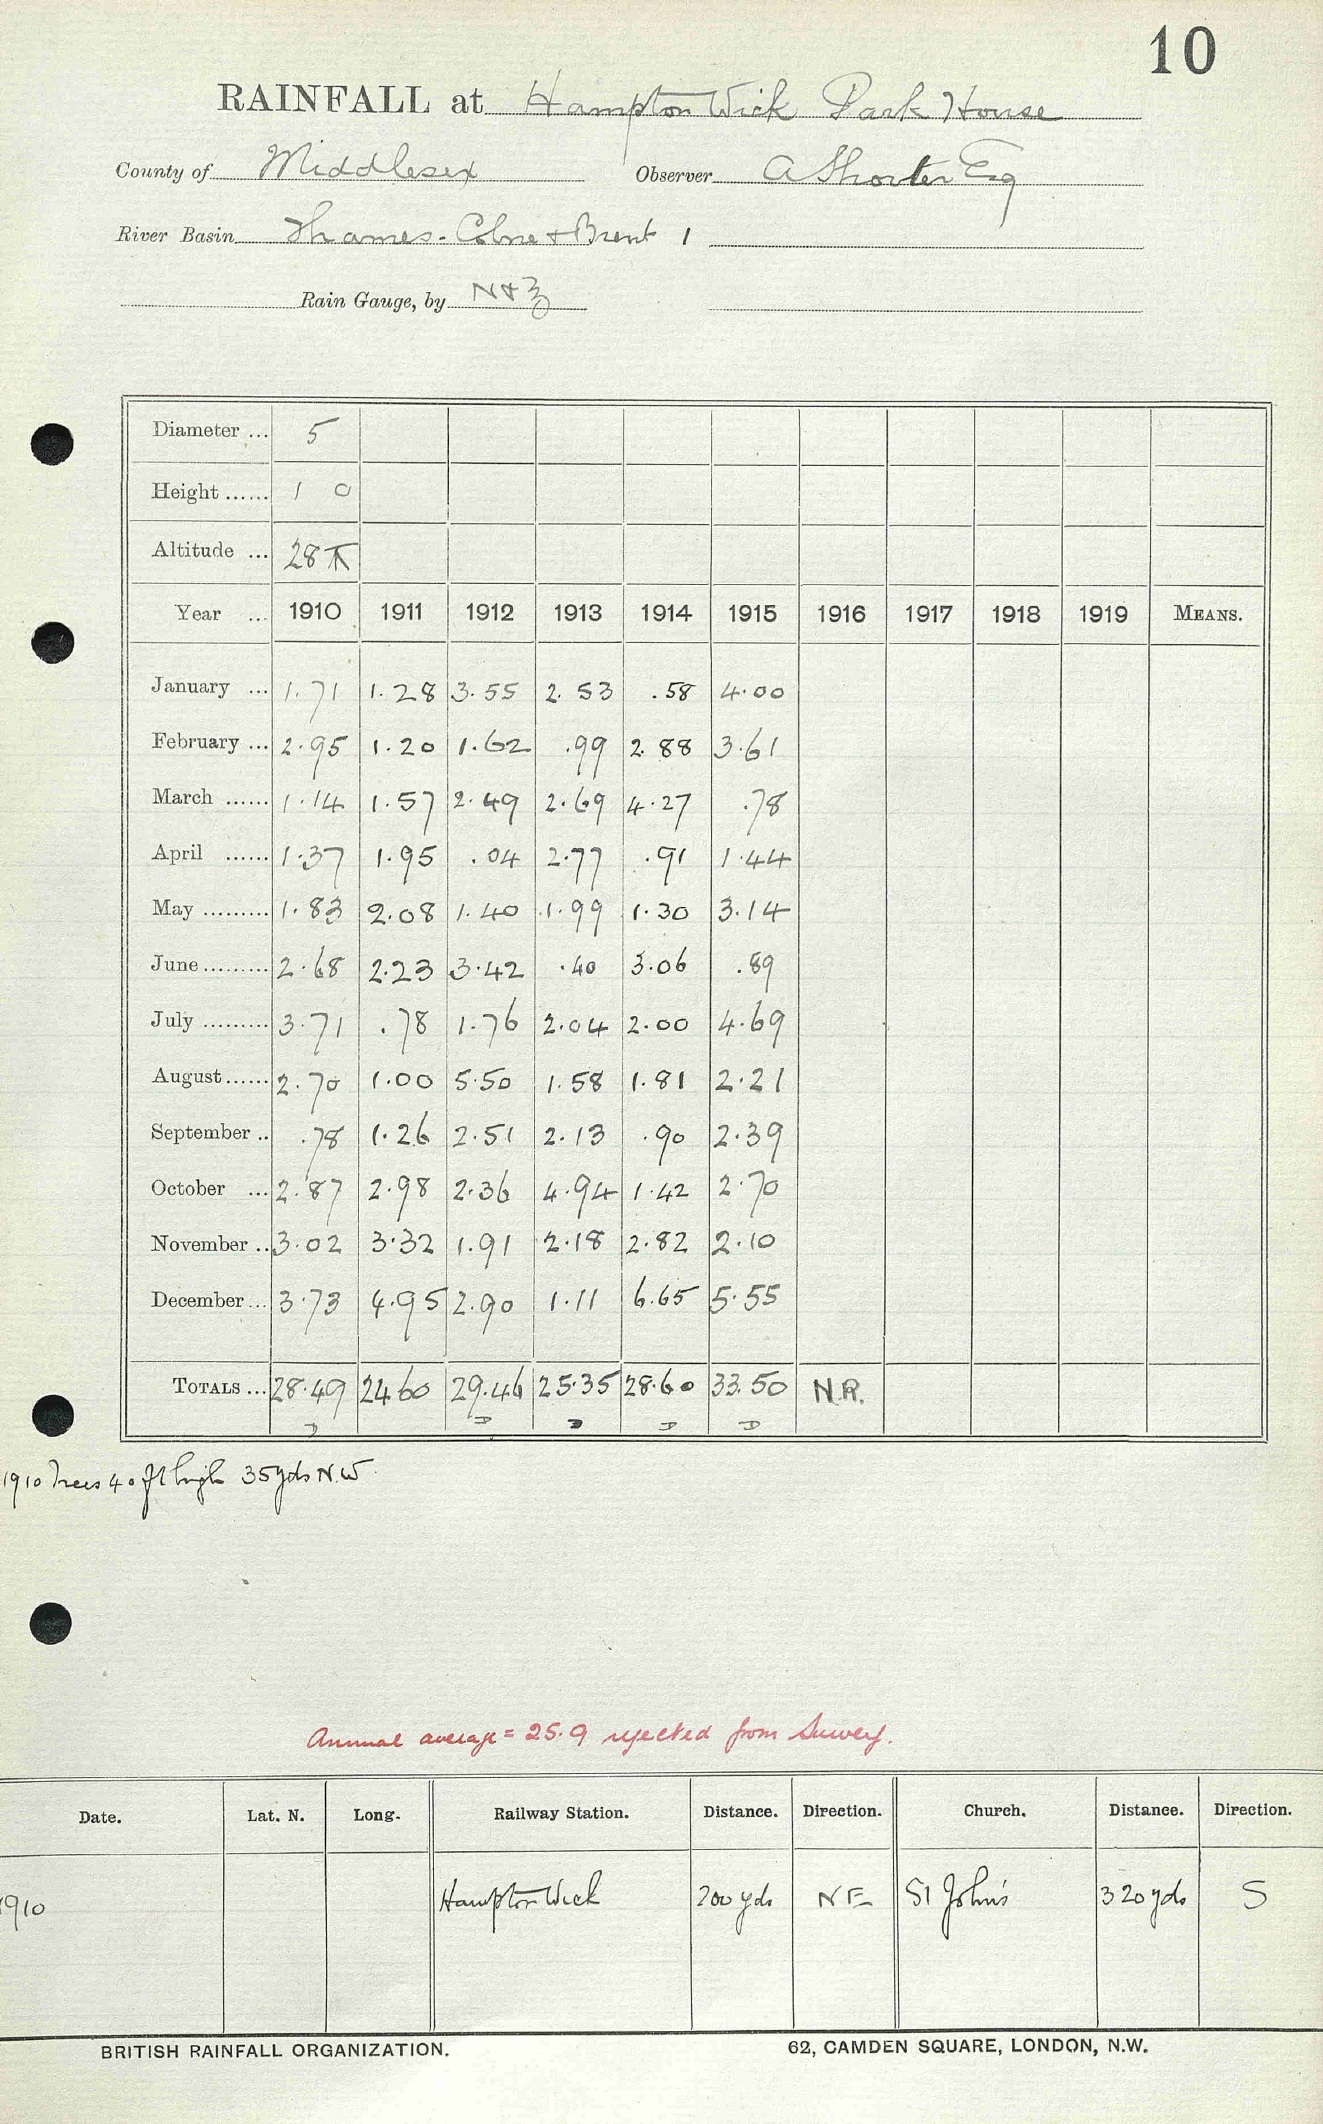 10
RAINFALL at Hampton Wick Park House
County of Middlesex Observer A Shorter Esq
River Basin Thames - Colne & Brent 1
Rain Gauge, by N & Z
Diameter ... 5
Height ...... 1 0
Altitude ... 28
Year ... 1910 1911 1912 1913 1914 1915 1916 1917 1918 1919 MEANS.
January ... 1.71 1.28 3.55 2.53 .58 4.00
February ... 2.95 1.20 1.62 .99 2.88 3.61
March ...... 1.14 1.57 2.49 2.69 4.27 .78
April ...... 1.37 1.95 .04 2.77 .91 1.44
May ......... 1.83 2.08 1.40 1.99 1.30 3.14
June ......... 2.68 2.23 3.42 .40 3.06 .89
July ......... 3.71 .78 1.76 2.04 2.00 4.69
August ...... 2.70 1.00 5.50 1.58 1.81 2.21
September .. .78 1.26 2.51 2.13 .90 2.39
October ... 2.87 2.98 2.36 4.94 1.42 2.70
November .. 3.02 3.32 1.91 2.18 2.82 2.10
December ... 3.73 4.95 2.90 1.11 6.65 5.55
TOTALS ... 28.49 24 60 29.46 25.35 28.60 33.50 N.R.
D D D D D
1910 Trees 40 ft high 35 yds N.W.
Annual average = 25.9 rejected from Survey.
Date. Lat. N. Long. Railway Station. Distance. Direction. Church. Distance. Direction.
1910 Hampton Wick 200 yds NE St John's 320 yds S
BRITISH RAINFALL ORGANIZATION. 62, CAMDEN SQUARE, LONDON, N.W.